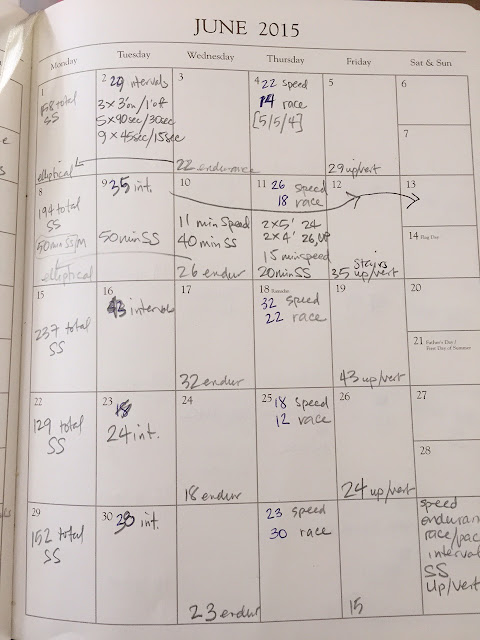 JUNE 2015
Monday Tuesday Wednesday Thursday Friday Sat & Sun
1
158 total
SS
elliptical
2 29 intervals
3x3'on/1'off
5x90sec/30sec
9x45sec/15sec
3
22 endurance
4 22 speed
14 race
[5/5/4]
5
29 up/vert
6
7
8
194 total
SS
50 min SS/M
elliptical
9 35 int.
50 min SS
10
11 min speed
40 min SS
26 endur
11 26 speed
18 race
2x5' 24
2x4' 26, up
15 min speed
20 min SS
12
Stairs
35 up/vert
13
14 Flag Day
15
237 total
SS
16
43 intervals
17
32 endur
18 Ramadan
32 speed
22 race
19
43 up/vert
20
21 Father's Day /
First Day of Summer
22
129 total
SS
23
24 int.
24
18 endur
25 18 speed
12 race
26
24 up/vert
27
28
29
152 total
SS
30 30 int.
23 endur
23 speed
30 race
15
speed
enduran
race/pac
interval
SS
up/vert